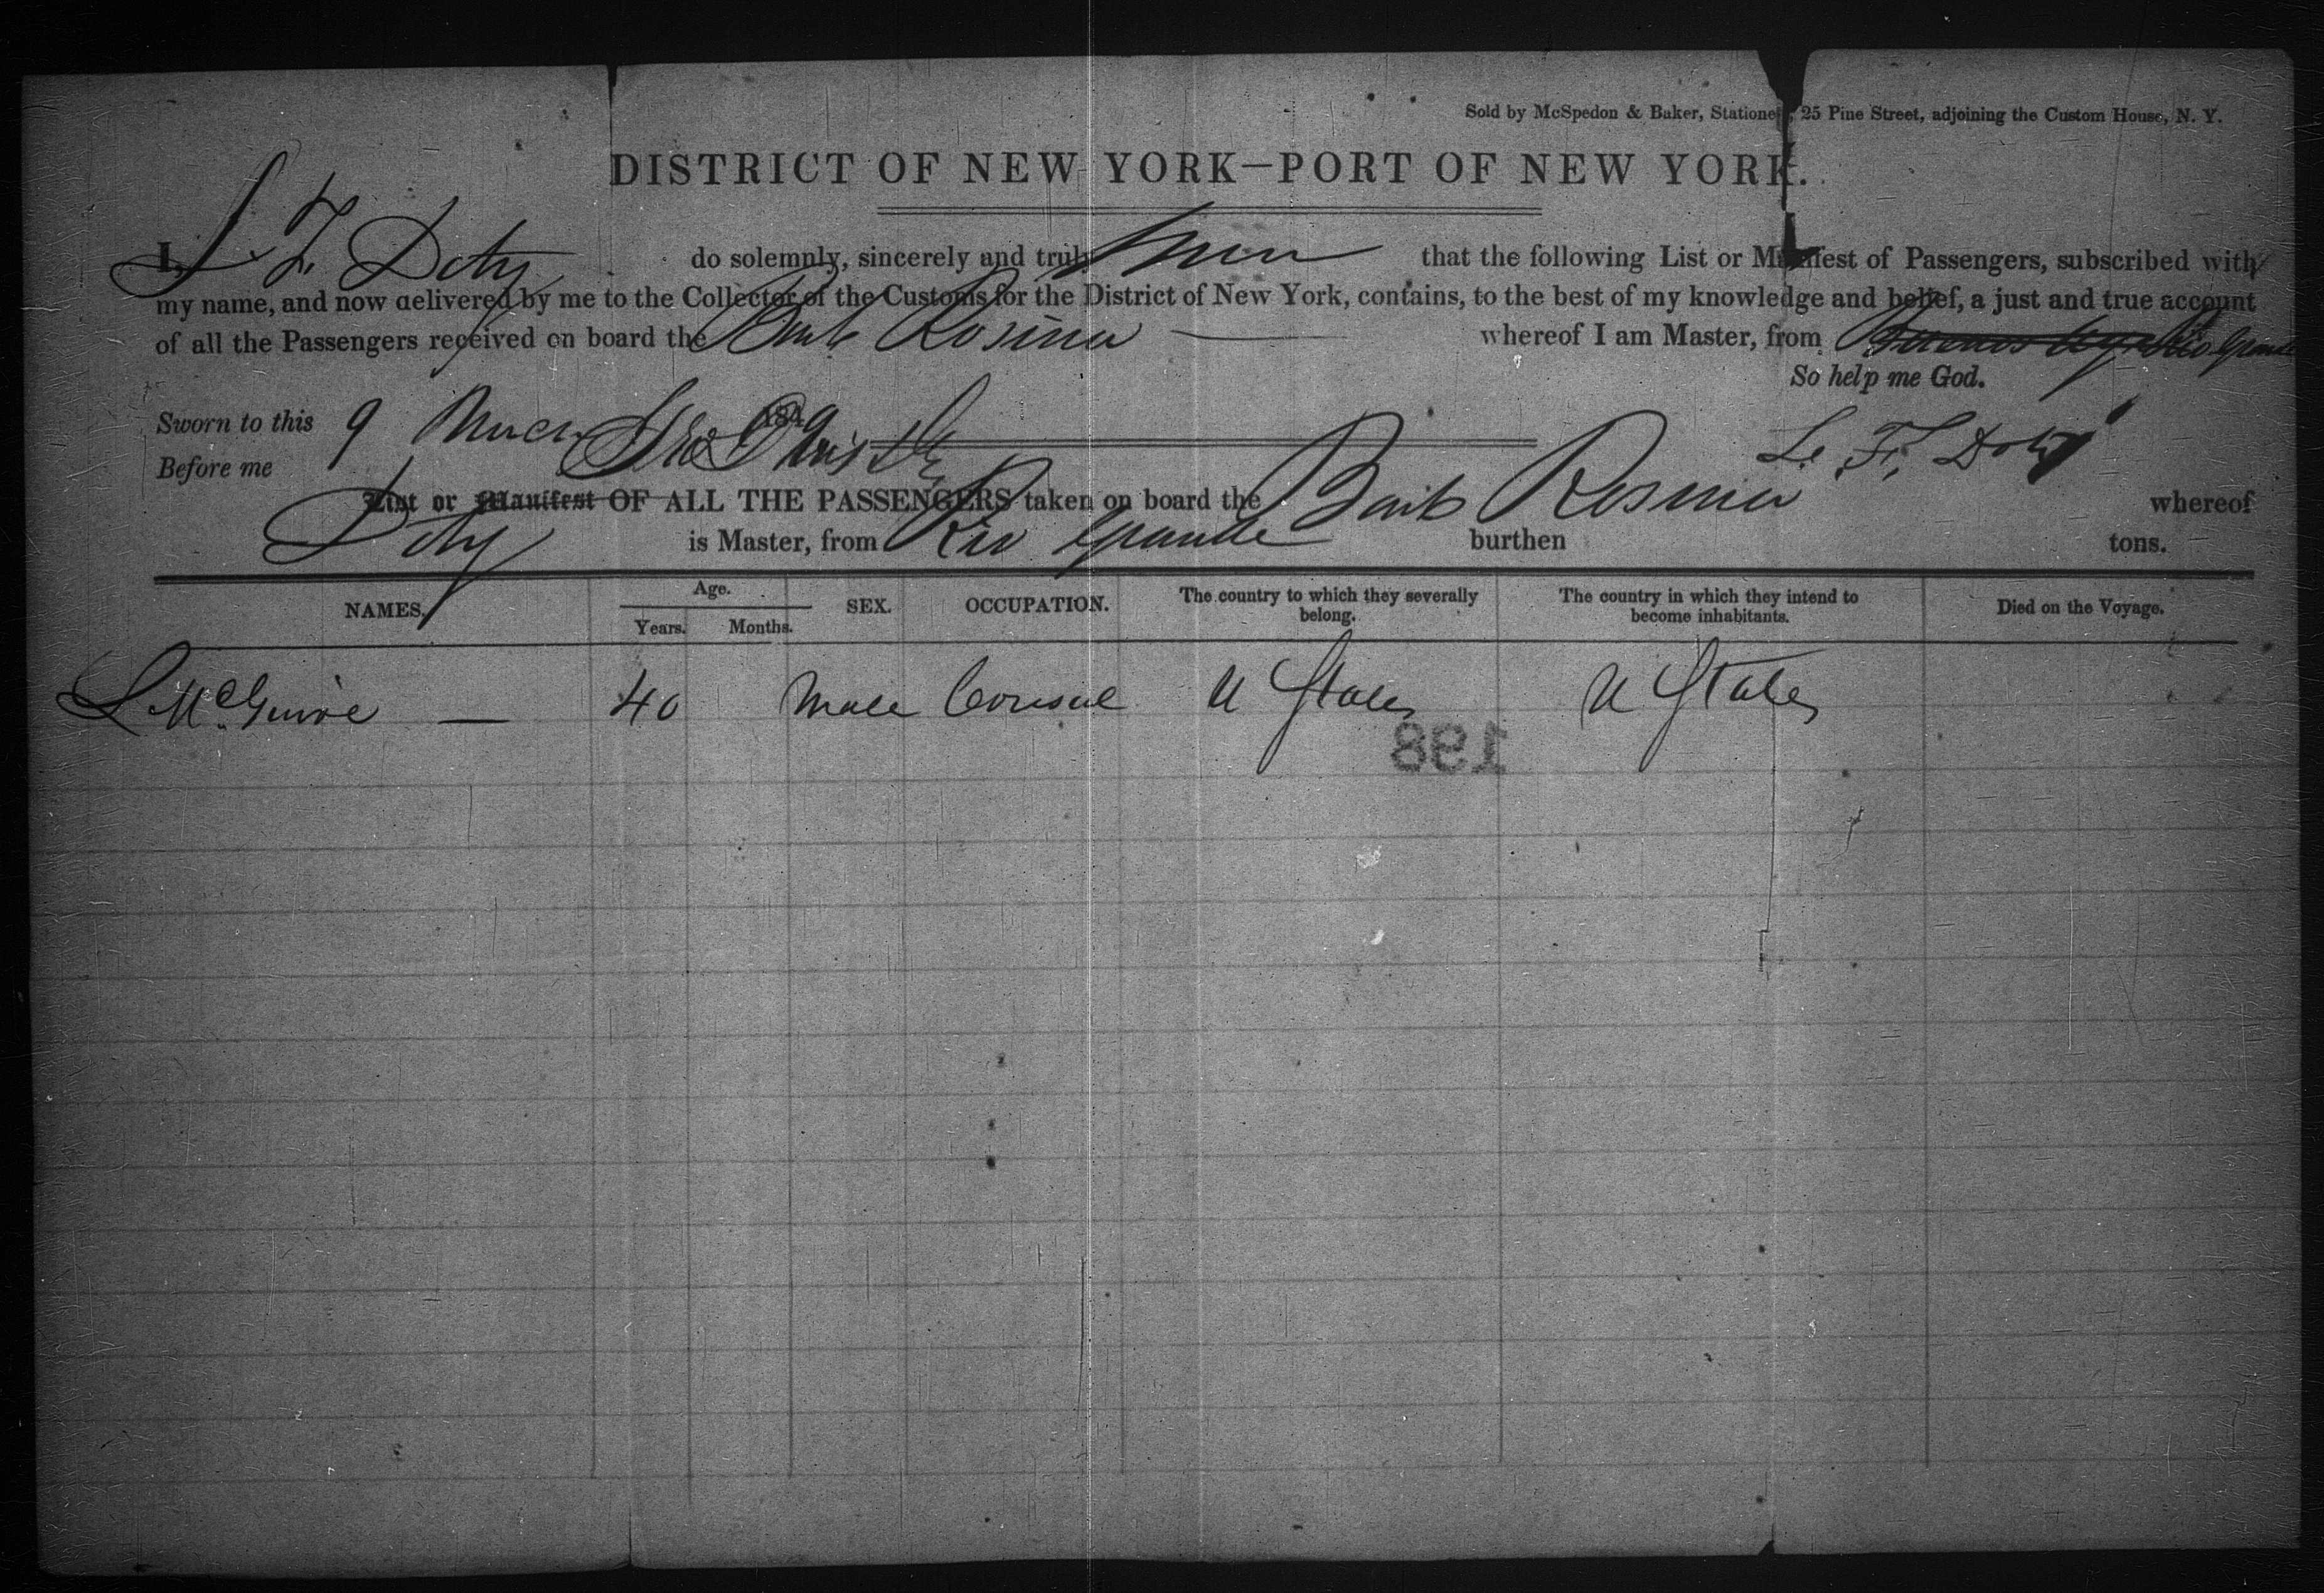 Sold by McSpedon & Baker, Stationers, 25 Pine Street, adjoining the Custom House, N. Y.
DISTRICT OF NEW YORK—PORT OF NEW YORK.
I, L. F. Doty do solemnly, sincerely and truly swear that the following List or Manifest of Passengers, subscribed with
my name, and now delivered by me to the Collector of the Customs for the District of New York, contains, to the best of my knowledge and belief, a just and true account
of all the Passengers received on board the Bark Rosina whereof I am Master, from Buenos Ayres Rio Grande
So help me God.
Sworn to this 9 March 1849
Before me L. F. Doty
List or Manifest OF ALL THE PASSENGERS taken on board the Bark Rosina whereof
Doty is Master, from Rio Grande burthen tons.
NAMES. Age. Years. Months. SEX. OCCUPATION. The country to which they severally belong. The country in which they intend to become inhabitants. Died on the Voyage.
L McGuire — 40 Male Consul U States U States
198